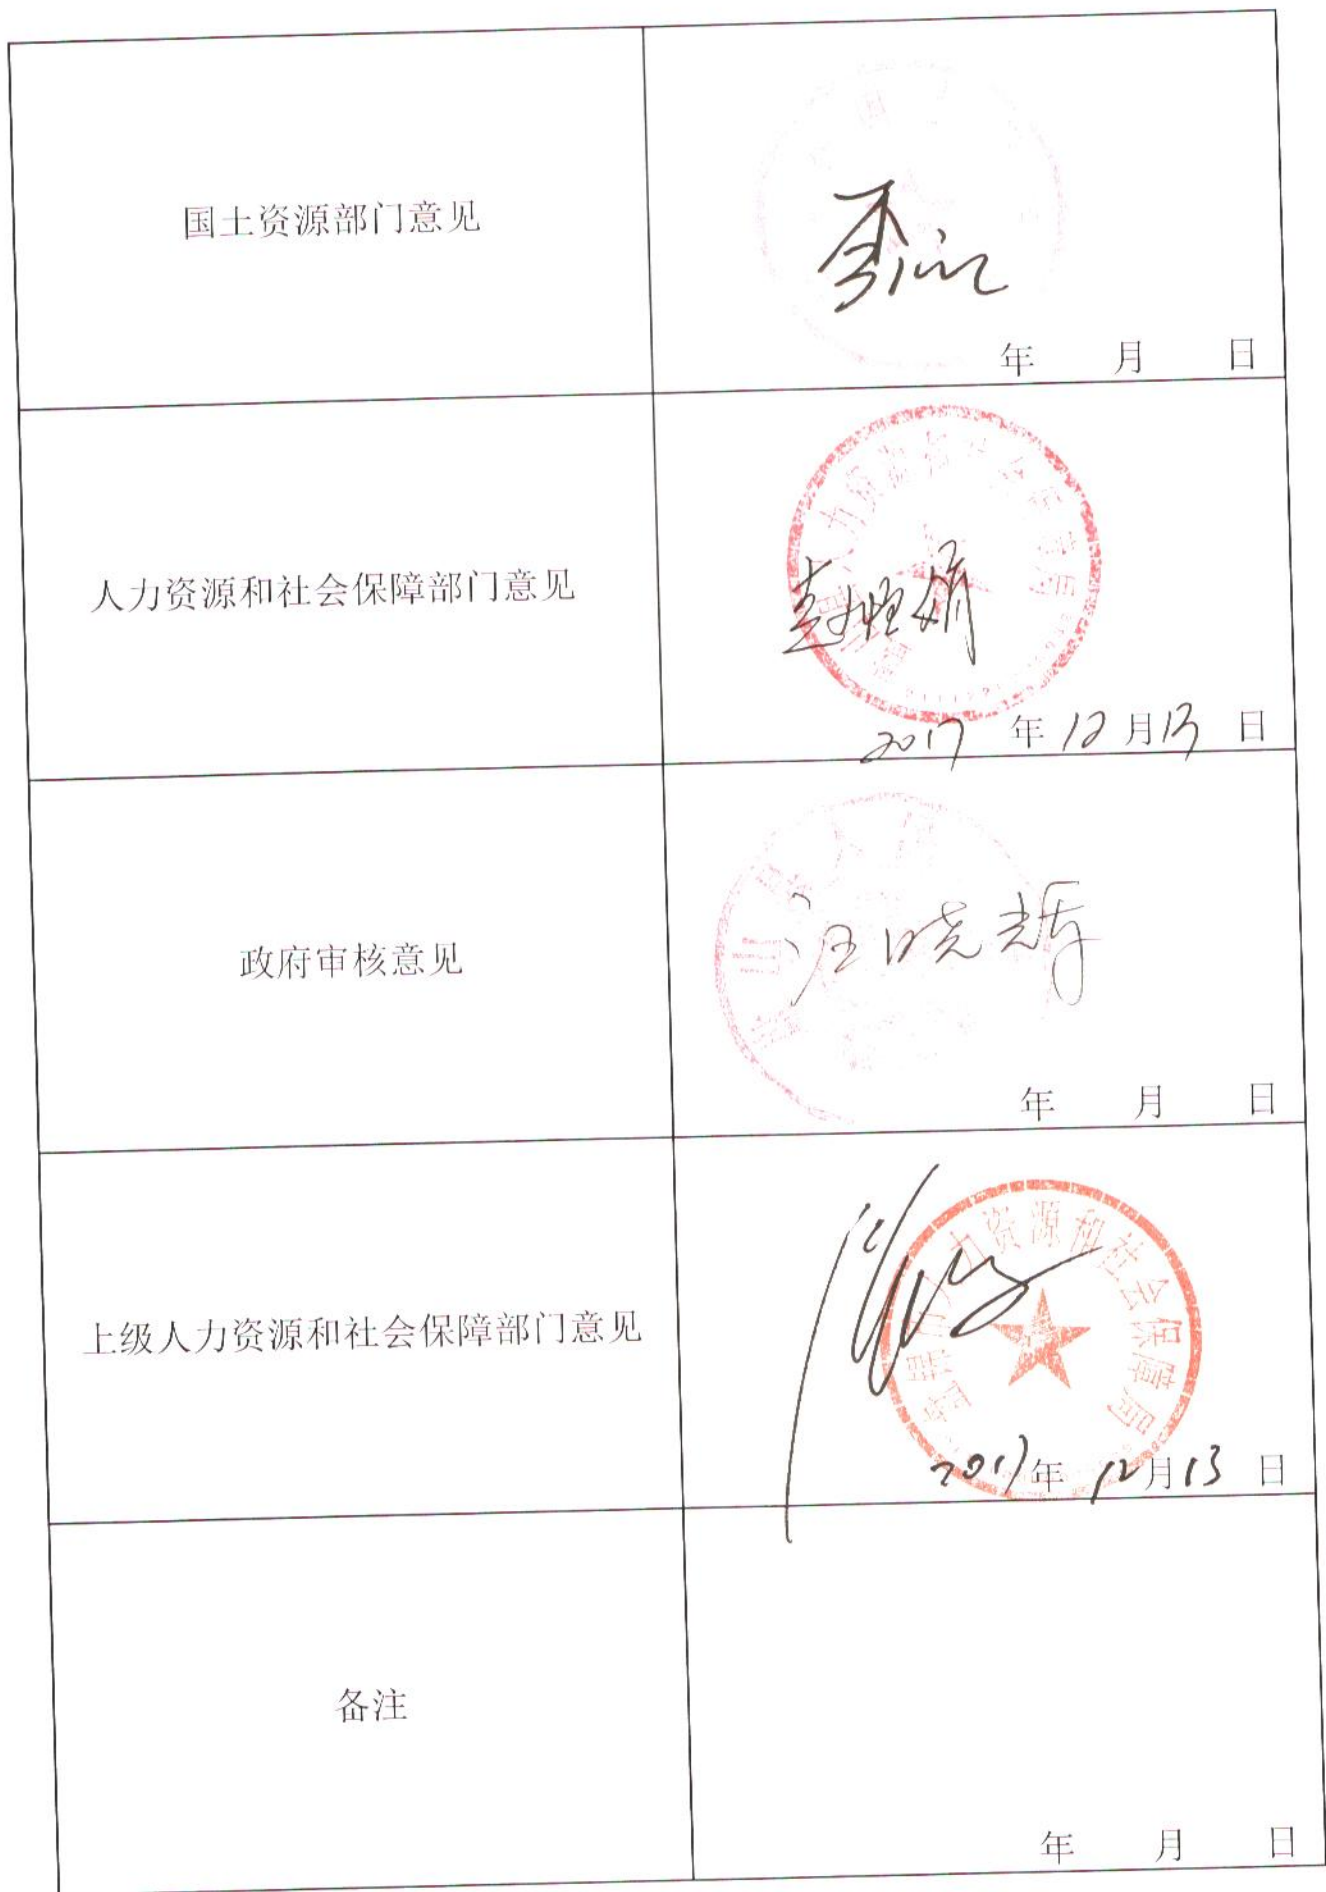 国土资源部门意见
年 月 日
人力资源和社会保障部门意见
人力资源和社会保障局
2017 年 12 月 13 日
政府审核意见
汪晓辉
年 月 日
上级人力资源和社会保障部门意见
力资源和社会保障局
2017年 12月13 日
备注
年 月 日